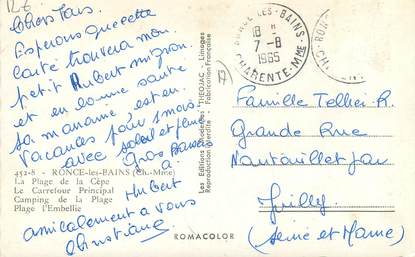 Chers Tous.
Esperons que cette
carte trouvera mon
petit Hubert mignon
et en bonne santé
sa maman est en
vacances pour 1 mois
avec soleil et pluie
Gros Baisers
à
Hubert
amicalement a vous
Christiane
452-8 - RONCE-les-BAINS (Ch.-Mme)
La Plage de la Cèpe
Le Carrefour Principal
Camping de la Plage
Plage l'Embellie
ROMACOLOR
Les Editions Artistiques THEOJAC - Limoges
Reproduction interdite Fabrication Française
RONCE-LES-BAINS
18 H
7-8
1965
CHARENTE-MME
17
Famille Tellier R.
Grande Rue
Nantouillet par
Juilly
(Seine et Marne)